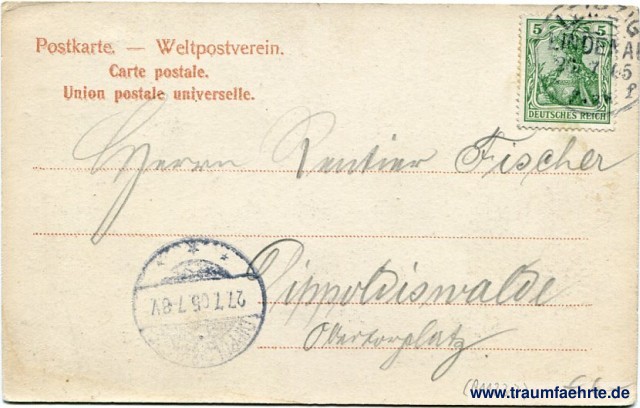 Postkarte. — Weltpostverein.
Carte postale.
Union postale universelle.
5 5
DEUTSCHES REICH
LEIPZIG
LINDENAU
Herrn Rentier Fischer
Dippoldiswalde
Obertorplatz
27.7.05.7-8V.
www.traumfaehrte.de